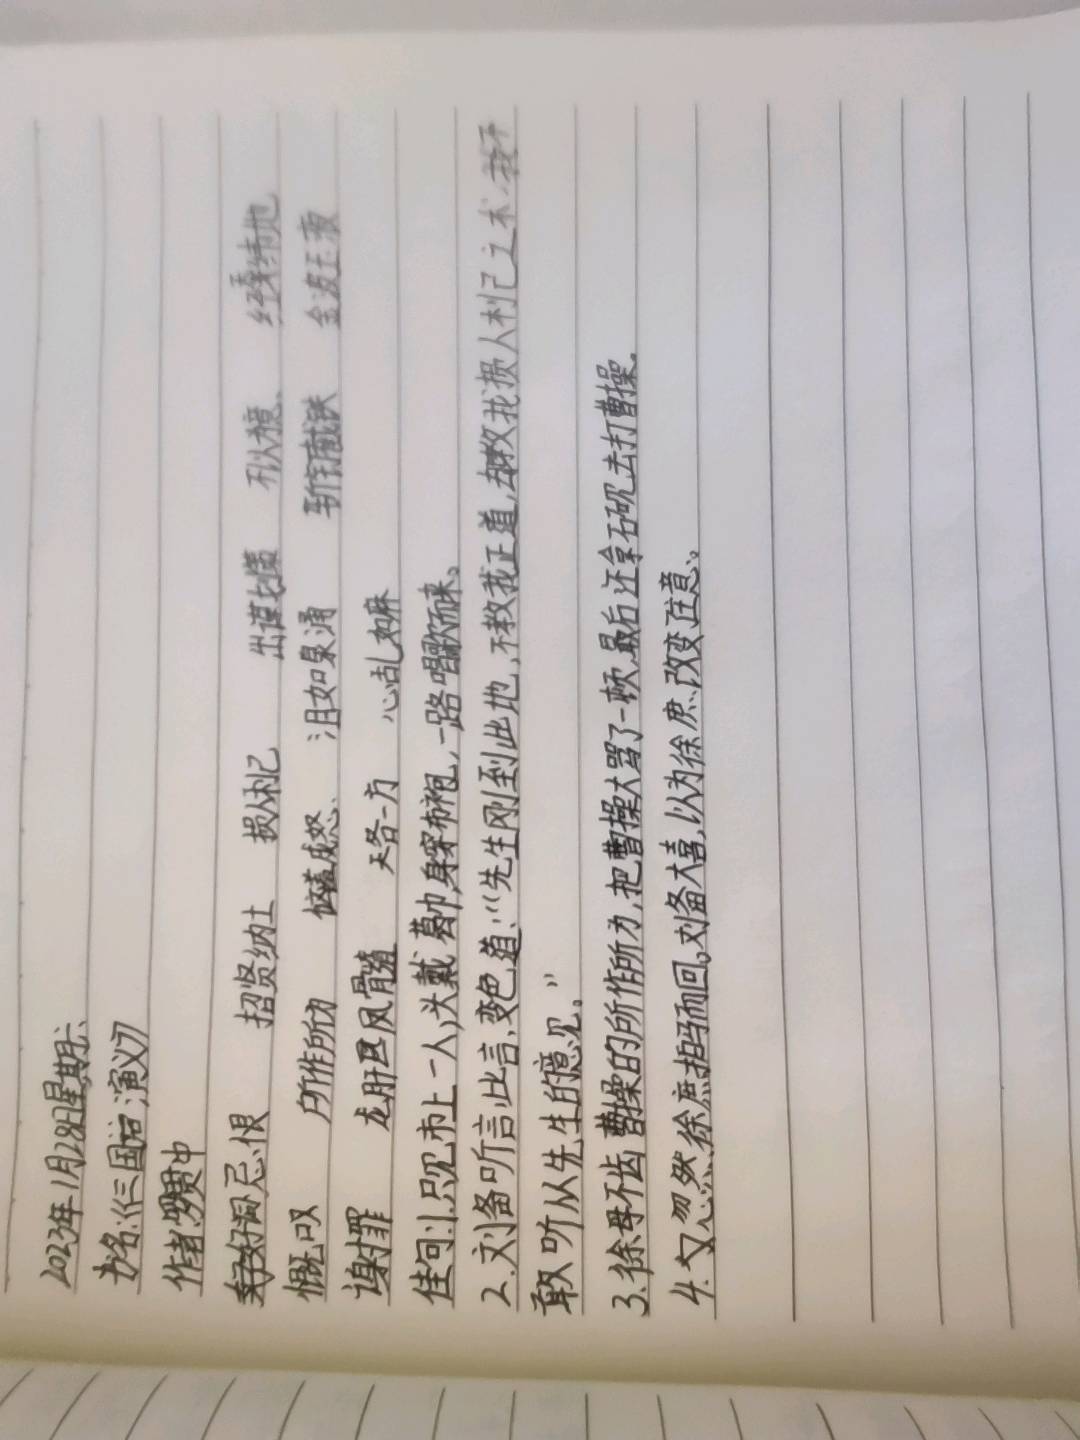 2023年1月28日星期六
书名:《三国演义》
作者:罗贯中
好词:忌恨 招贤纳士 损人利己 出谋划策 不以为意、 经天纬地
慨叹 所作所为 恼羞成怒、 泪如泉涌 斩钉截铁 金波玉液
谢罪 龙肝凤髓 天各一方 心乱如麻
佳句:1.只见市上一人,头戴葛巾,身穿布袍,一路唱歌而来。
2.刘备听言此言,变色道:“先生刚到此地,不教我正道,却教我损人利己之术,我不
敢听从先生的意见。”
3.徐母不齿曹操的所作所为,把曹操大骂了一顿,最后还拿石砚去打曹操。
4.忽然徐庶拍马而回。刘备大喜,以为徐庶改变注意。